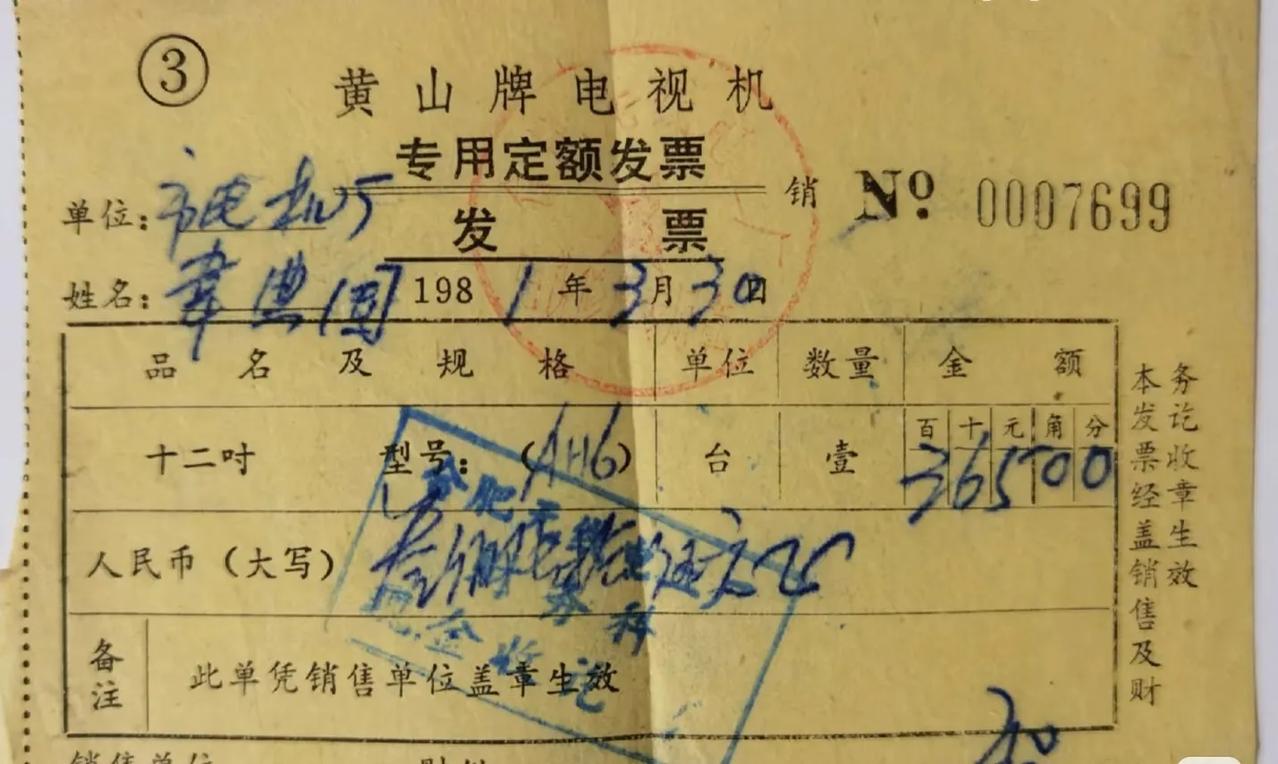 ③
黄山牌电视机
专用定额发票
发票
销 № 0007699
单位：
姓名： 韦典国
1981年3月30日
品名及规格 单位 数量 金额
百 十 元 角 分
十二吋 型号：（AH6） 台 壹 36500
人民币（大写）
备注 此单凭销售单位盖章生效
本发票经盖销售及财
务讫收章生效